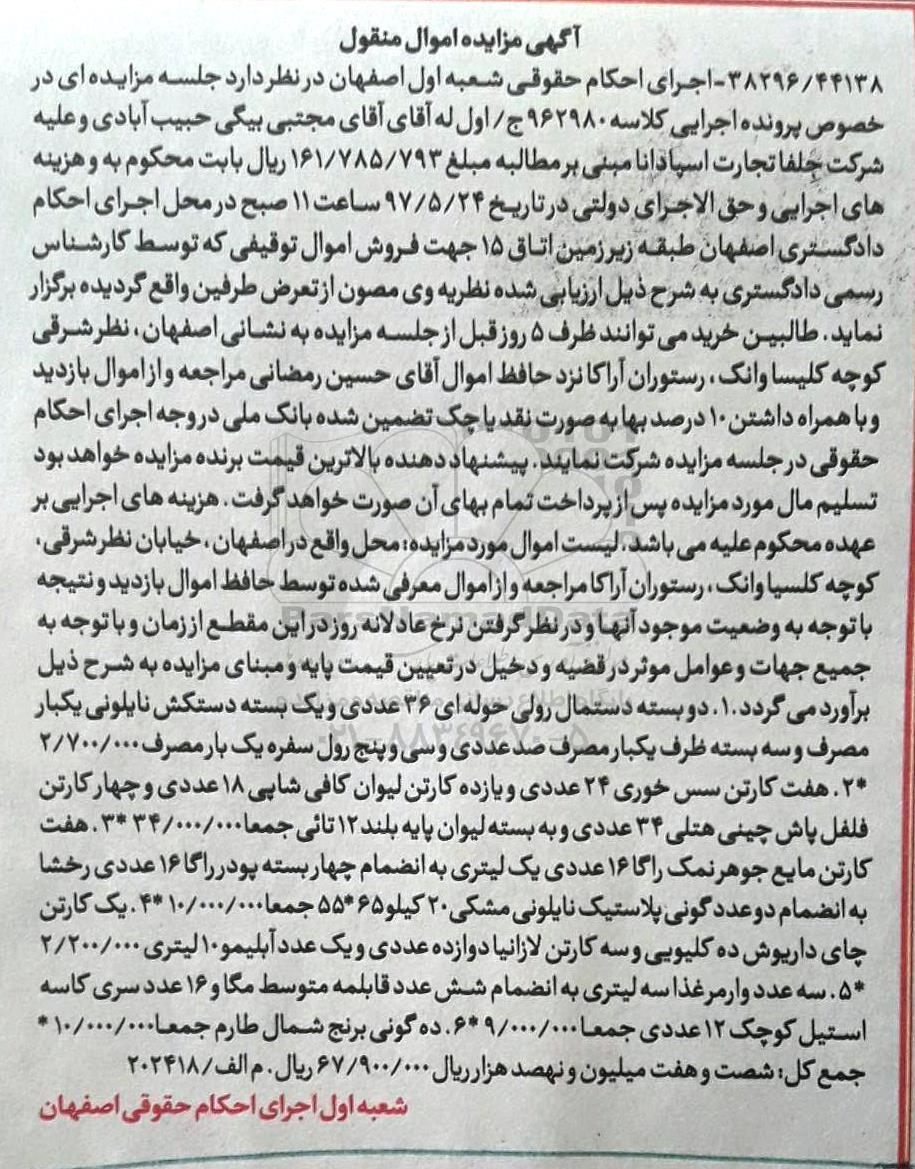 آگهی مزایده اموال منقول
۳۸۲۹۶/۴۴۱۳۸-اجرای احکام حقوقی شعبه اول اصفهان در نظر دارد جلسه مزایده ای در
خصوص پرونده اجرایی کلاسه ۹۶۲۹۸۰ ج/ اول له آقای آقای مجتبی بیگی حبیب آبادی و علیه
شرکت جلفا تجارت اسپادانا مبنی بر مطالبه مبلغ ۱۶۱/۷۸۵/۷۹۳ ریال بابت محکوم به و هزینه
های اجرایی و حق الاجرای دولتی در تاریخ ۹۷/۵/۲۴ ساعت ۱۱ صبح در محل اجرای احکام
دادگستری اصفهان طبقه زیر زمین اتاق ۱۵ جهت فروش اموال توقیفی که توسط کارشناس
رسمی دادگستری به شرح ذیل ارزیابی شده نظریه وی مصون از تعرض طرفین واقع گردیده برگزار
نماید. طالبین خرید می توانند ظرف ۵ روز قبل از جلسه مزایده به نشانی اصفهان، نظر شرقی
کوچه کلیسا وانک، رستوران آراکا نزد حافظ اموال آقای حسین رمضانی مراجعه و از اموال بازدید
و با همراه داشتن ۱۰ درصد بها به صورت نقد یا چک تضمین شده بانک ملی در وجه اجرای احکام
حقوقی در جلسه مزایده شرکت نمایند. پیشنهاد دهنده بالاترین قیمت برنده مزایده خواهد بود
تسلیم مال مورد مزایده پس از پرداخت تمام بهای آن صورت خواهد گرفت. هزینه های اجرایی بر
عهده محکوم علیه می باشد. لیست اموال مورد مزایده: محل واقع در اصفهان، خیابان نظر شرقی،
کوچه کلسیا وانک، رستوران آراکا مراجعه و از اموال معرفی شده توسط حافظ اموال بازدید و نتیجه
با توجه به وضعیت موجود آنها و در نظر گرفتن نرخ عادلانه روز در این مقطع از زمان و با توجه به
ParsNamadData
جمیع جهات و عوامل موثر در قضیه و دخیل در تعیین قیمت پایه و مبنای مزایده به شرح ذیل
برآورد می گردد.۱. دو بسته دستمال رولی حوله ای ۳۶ عددی و یک بسته دستکش نایلونی یکبار
۰۲۱-۸۸۳۴۹۶۷۰-۵
مصرف و سه بسته ظرف یکبار مصرف صد عددی و سی و پنج رول سفره یک بار مصرف ۲/۷۰۰/۰۰۰
*۲. هفت کارتن سس خوری ۲۴ عددی و یازده کارتن لیوان کافی شاپی ۱۸ عددی و چهار کارتن
فلفل پاش چینی هتلی ۳۴ عددی و به بسته لیوان پایه بلند ۱۲ تائی جمعا ۳۴/۰۰۰/۰۰۰ *۳. هفت
کارتن مایع جوهر نمک راگا ۱۶ عددی یک لیتری به انضمام چهار بسته پودر راگا ۱۶ عددی رخشا
به انضمام دو عدد گونی پلاستیک نایلونی مشکی ۲۰ کیلو ۶۵*۵۵ جمعا ۱۰/۰۰۰/۰۰۰ *۴. یک کارتن
چای داریوش ده کلیویی و سه کارتن لازانیا دوازده عددی و یک عدد آبلیمو ۱۰ لیتری ۲/۲۰۰/۰۰۰
*۵. سه عدد وارمر غذا سه لیتری به انضمام شش عدد قابلمه متوسط مگا و ۱۶ عدد سری کاسه
استیل کوچک ۱۲ عددی جمعا ۹/۰۰۰/۰۰۰ *۶. ده گونی برنج شمال طارم جمعا ۱۰/۰۰۰/۰۰۰ *
جمع کل: شصت و هفت میلیون و نهصد هزار ریال ۶۷/۹۰۰/۰۰۰ ریال. م الف/ ۲۰۲۴۱۸
شعبه اول اجرای احکام حقوقی اصفهان